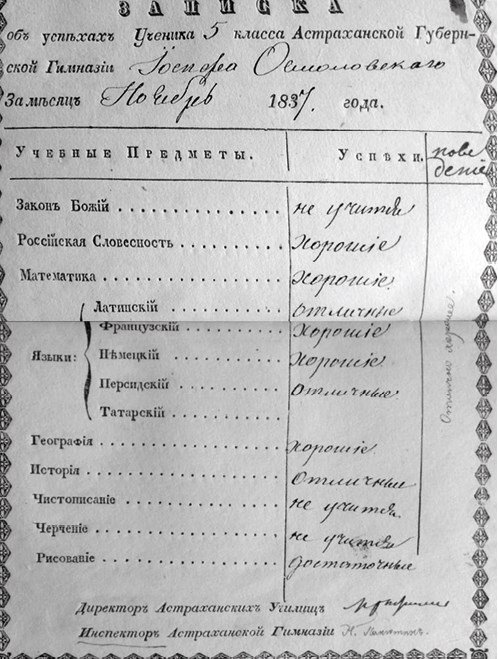 ЗАПИСКА
объ успѣхахъ Ученика 5 класса Астраханской Губерн-
ской Гимназіи Іосифа Осмоловскаго
За мѣсяцъ Ноябрь 1837. года.
Учебные Предметы. Успѣхи. пове
деніе
Законъ Божій не учится
Россійская Словесность Хорошіе
Математика Хорошіе.
Языки:
Латинскій отличные
Французскій Хорошіе
Нѣмецкій Хорошіе
Персидскій отличные
Татарскій
Географія хорошіе
Исторія отличные
Чистописаніе не учится
Черченіе не учится
Рисованіе достаточные
Отлично хорошее.
Директоръ Астраханскихъ Училищъ
Инспекторъ Астраханской Гимназіи